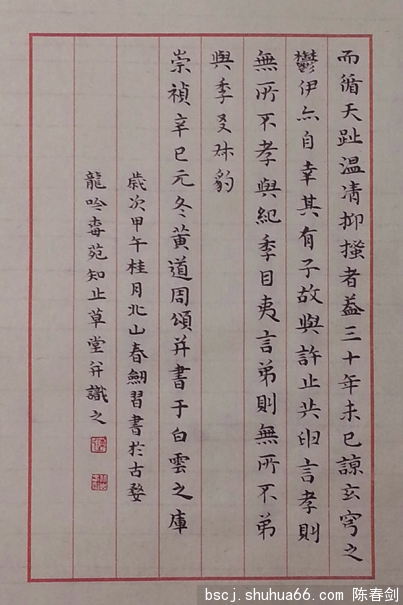 而循天趾温凊抑搔者益三十年未已諒玄穹之
鬱伊亦自幸其有子故與許止共卵言孝則
無所不孝與紀季目夷言弟則無所不弟
與季叐叔豹
崇禎辛巳元冬黃道周頌并書于白雲之庫
歲次甲午桂月北山春劒習書於古婺
龍吟毒苑知止草堂并識之
bscj.shuhua66.com 陈春剑